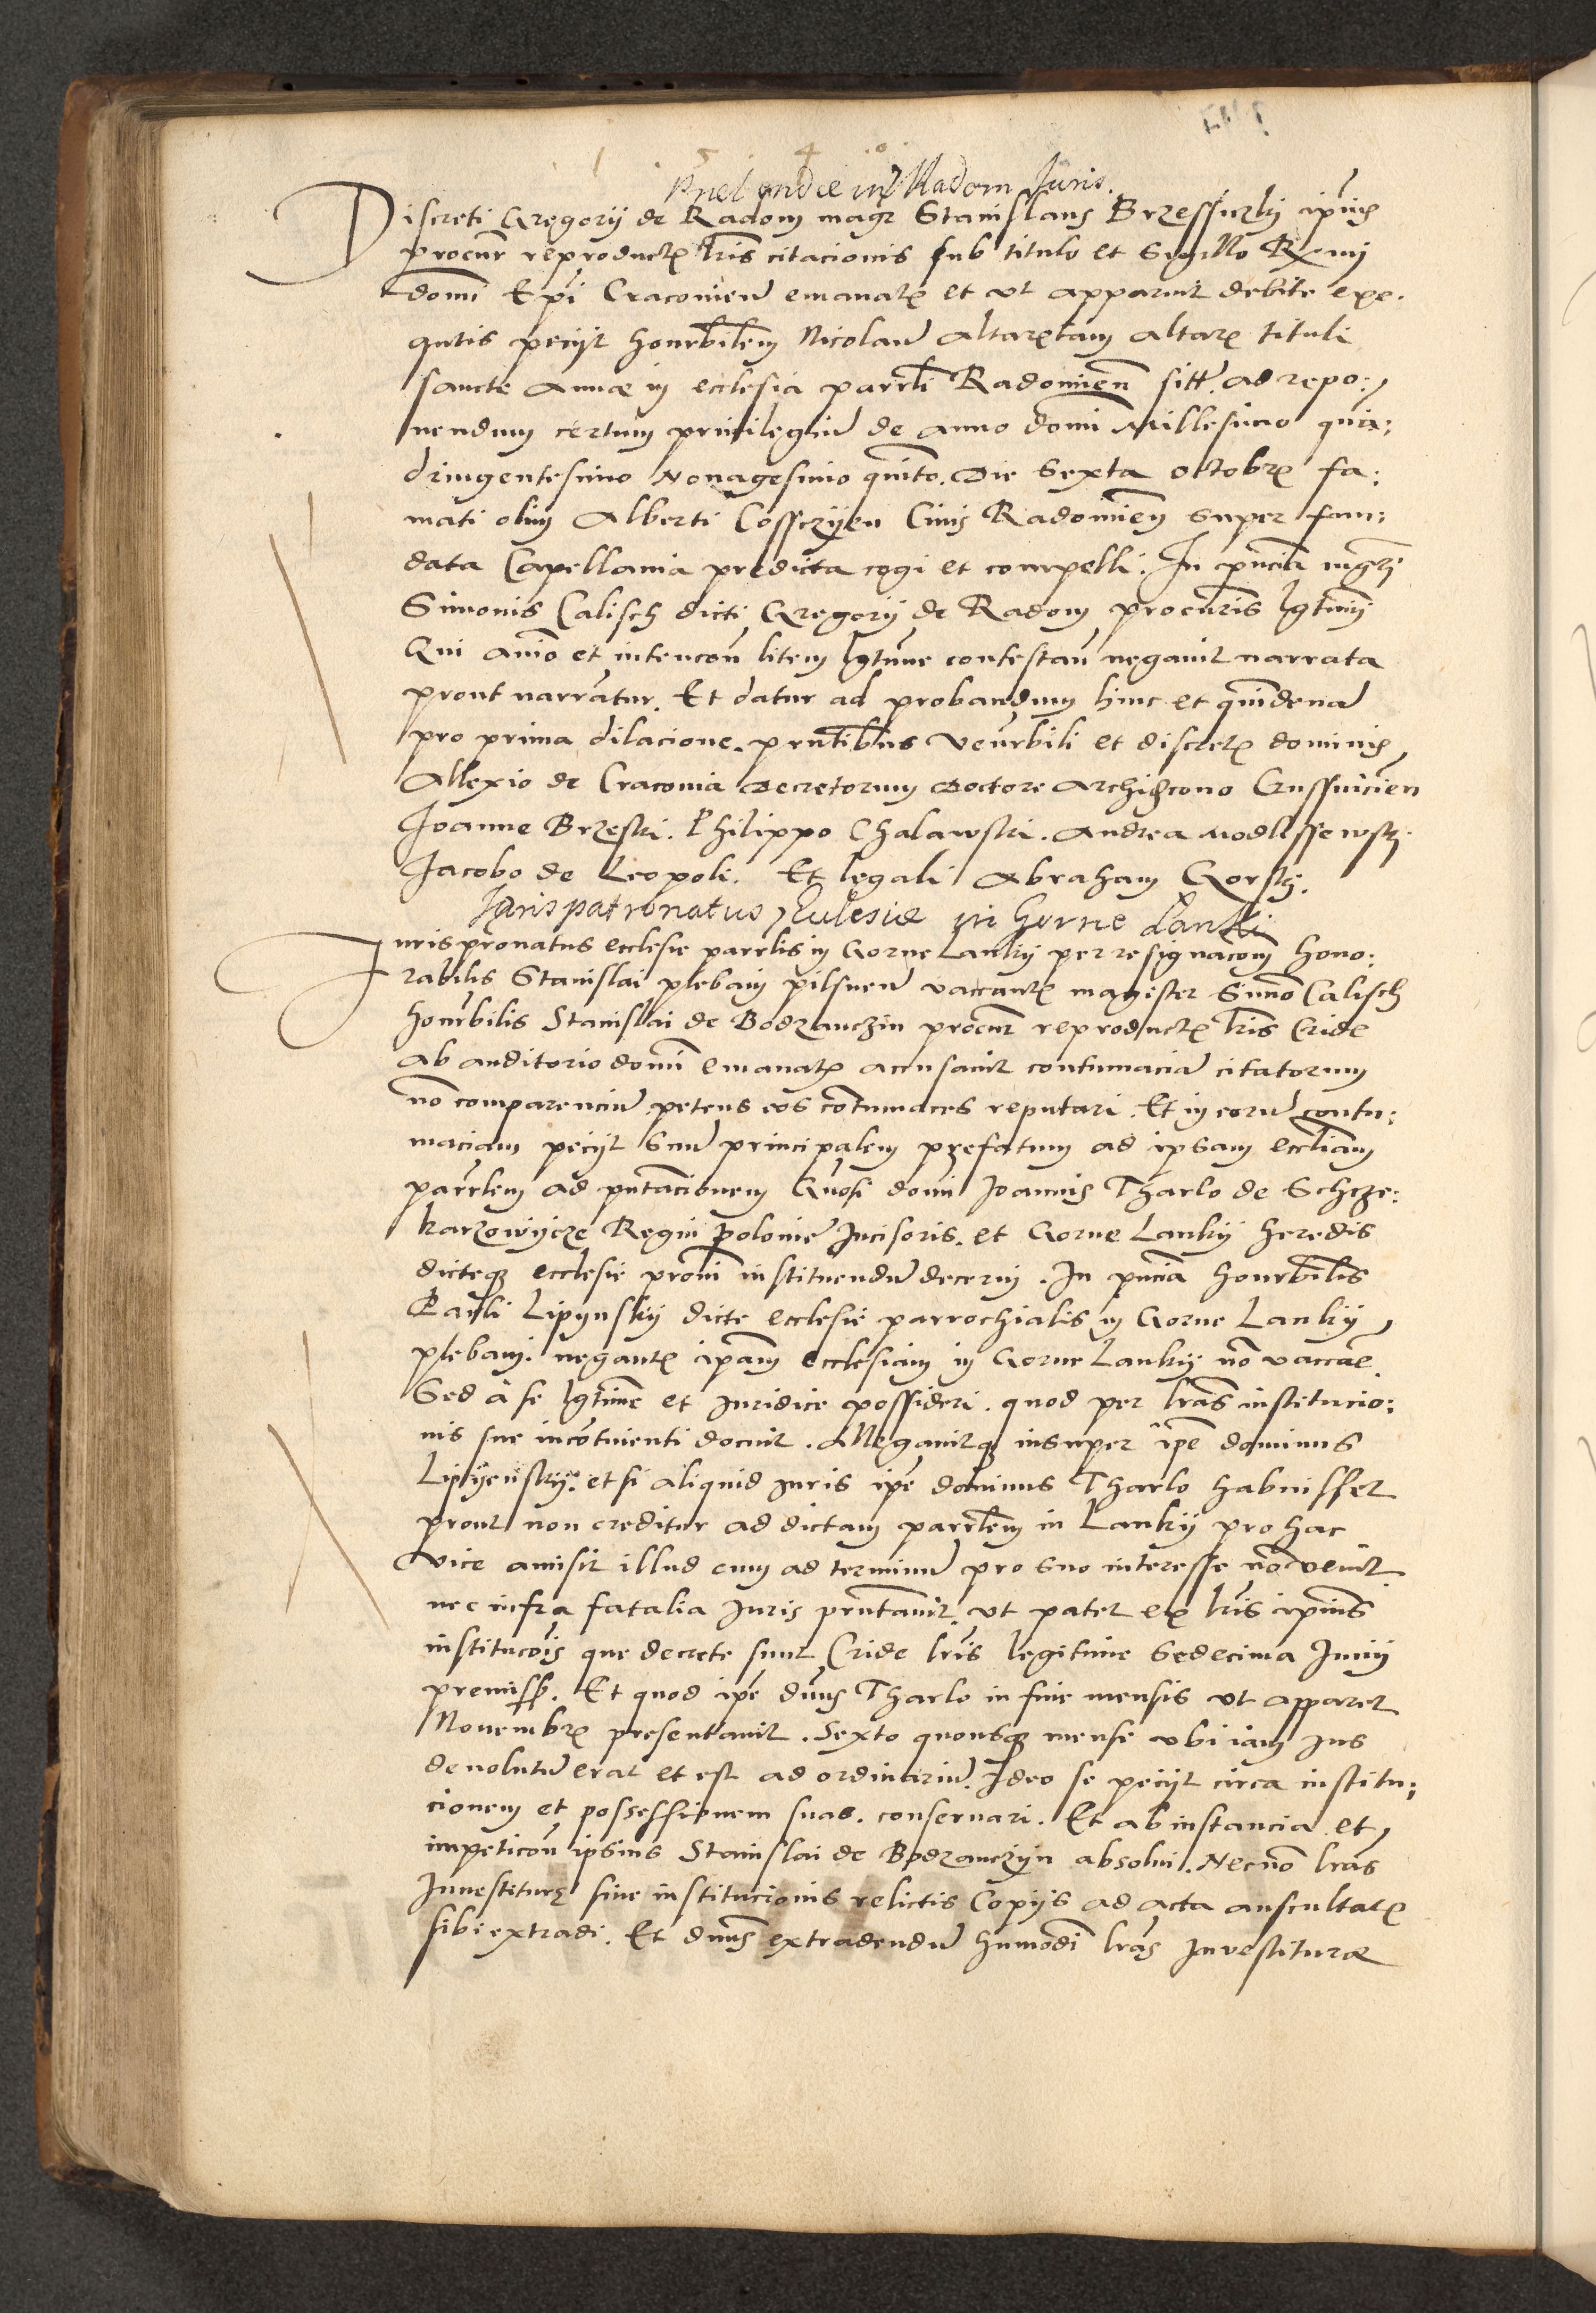 Prebendae in Radom Juris.
Discreti Gregorij de Radom magr Stanislaus Brzessiczky ipius
procur reproductis lris citacionis sub titulo et Sigillo Rxmi
domi Epi Cracovien emanatis et ut apparuit debite exe-
qutis petijt honorbilem Nicolaum Altaristam altaris tituli
sancte Annae in ecclesia parrli Radomien sitt. ad repo:
nendum certum privilegium de anno domi Millesimo qua:
dringentesimo Nonagesimo quinto. Die Sexta Octobris fa:
mati olim Alberti Cossczyen Civis Radomien super fun:
data Capellania predicta cogi et compelli. In pncia mgri
Simonis Calisch dicti Gregorij de Radom procuris lgtimi
Qui animo et intencon litem lgtime contestan negavit narrata
prout narrantur. Et datur ad probandum hinc et quindenam
pro prima dilacione. prntibus venerbili et discretis dominis
Allexio de Cracovia Decretorum Doctore Archidiacono
Joanne Brzeski. Philippo Chalawski. Andrea Modlissewsky
Jacobo de Leopoli. Et legali Abraham Gorsky.
Juris patronatus Eclesiae in Gorne Lanki
Juris pronatus ecclesie parrlis in Gorne Lanky per resignacom hono:
rabilis Stanislai plebani pilsnen vaccantis magister Simo Calisch
honorbilis Stanislai de Bodzanczin procur reproductis lris Cride
ab auditorio domi emanatis accusavit contumaciam citatorum
no comparencium petens eos contumaces reputari. Et in eorum contu:
maciam petijt suum principalem prefatum ad ipsam eccliam
parrlem ad pntacionem Gnosi domi Joannis Tharlo de Schcze:
karzowijcze Regni polonie Incisoris. et Gorne Lankij heredis
dicteque ecclesie proni instituendum decerni. In pncia honorbilis
Pauli Lipynskij dicte ecclesie parrochialis in Gorne Lankij
plebani. negantis ipam ecclesiam in Gorne Lankij no vaccare
Sed a se lgtime et iuridice possideri. quod per lras institucio:
nis sue incontinenti docuit. Allegavitque insuper ipe dominus
Lipijenskij. et si aliquid iuris ipe dominus Tharlo habuisset
prout non creditur ad dictam parrlem in Lankij pro hac
vice amisit illud cum ad terminum pro suo interesse no venit
nec infra fatalia Juris prntavit. ut patet ex lris ipius
institucois que decrete sunt Cride lris legitime Sedecima Junij
premiss. Et quod ipe dnus Tharlo in fine mensis ut apparet
Novembris presentavit. Sexto quousque mense ubi iam ius
devolutum erat et est ad ordinarium. Ideo se petijt circa institu:
cionem et possessionem suas. conservari. Et ab instancia et
impeticon ipsius Stanislai de Bodzanczijn absolvi. Necno lras
Investiture sive institucionis relictis Copijs ad acta auscultatis
sibi extradi. Et dnus extradendum humodi lras Investiturae